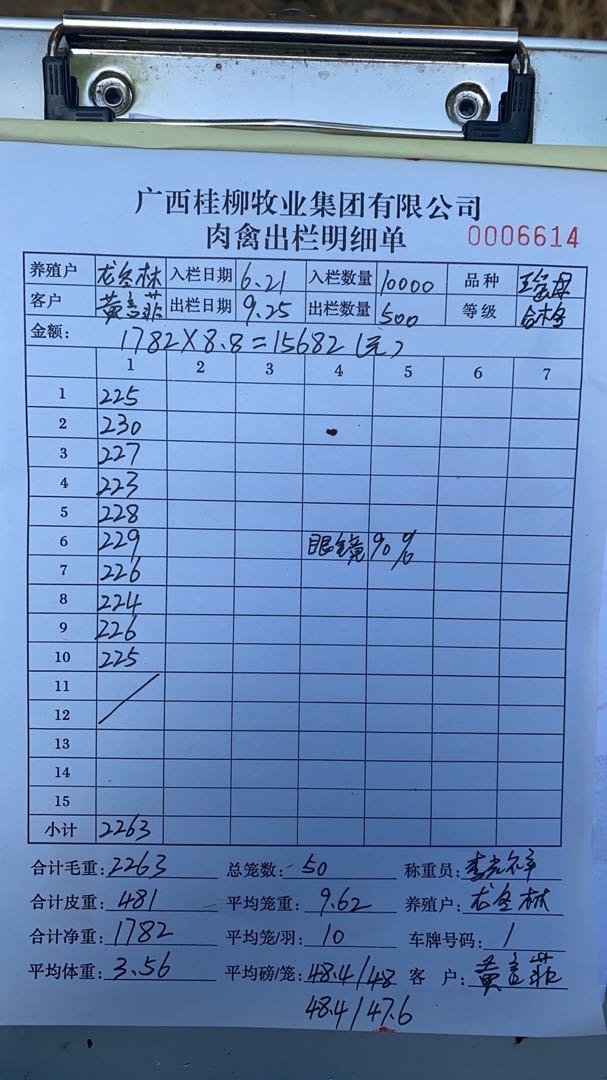 广西桂柳牧业集团有限公司
肉禽出栏明细单 0006614
养殖户 龙冬林 入栏日期 6.21 入栏数量 10000 品种
客户 黄 菲 出栏日期 9.25 出栏数量 500 等级 合格
金额: 1782×8.8=15682(元)
1 2 3 4 5 6 7
1 225
2 230
3 227
4 223
5 228
6 229 眼镜90%
7 226
8 224
9 226
10 225
11
12
13
14
15
小计 2263
合计毛重: 2263 总笼数: 50 称重员: 李
合计皮重: 481 平均笼重: 9.62 养殖户: 龙冬林
合计净重: 1782 平均笼/羽: 10 车牌号码: 1
平均体重: 3.56 平均磅/笼: 48.4/48 客 户: 黄 菲
48.4/47.6